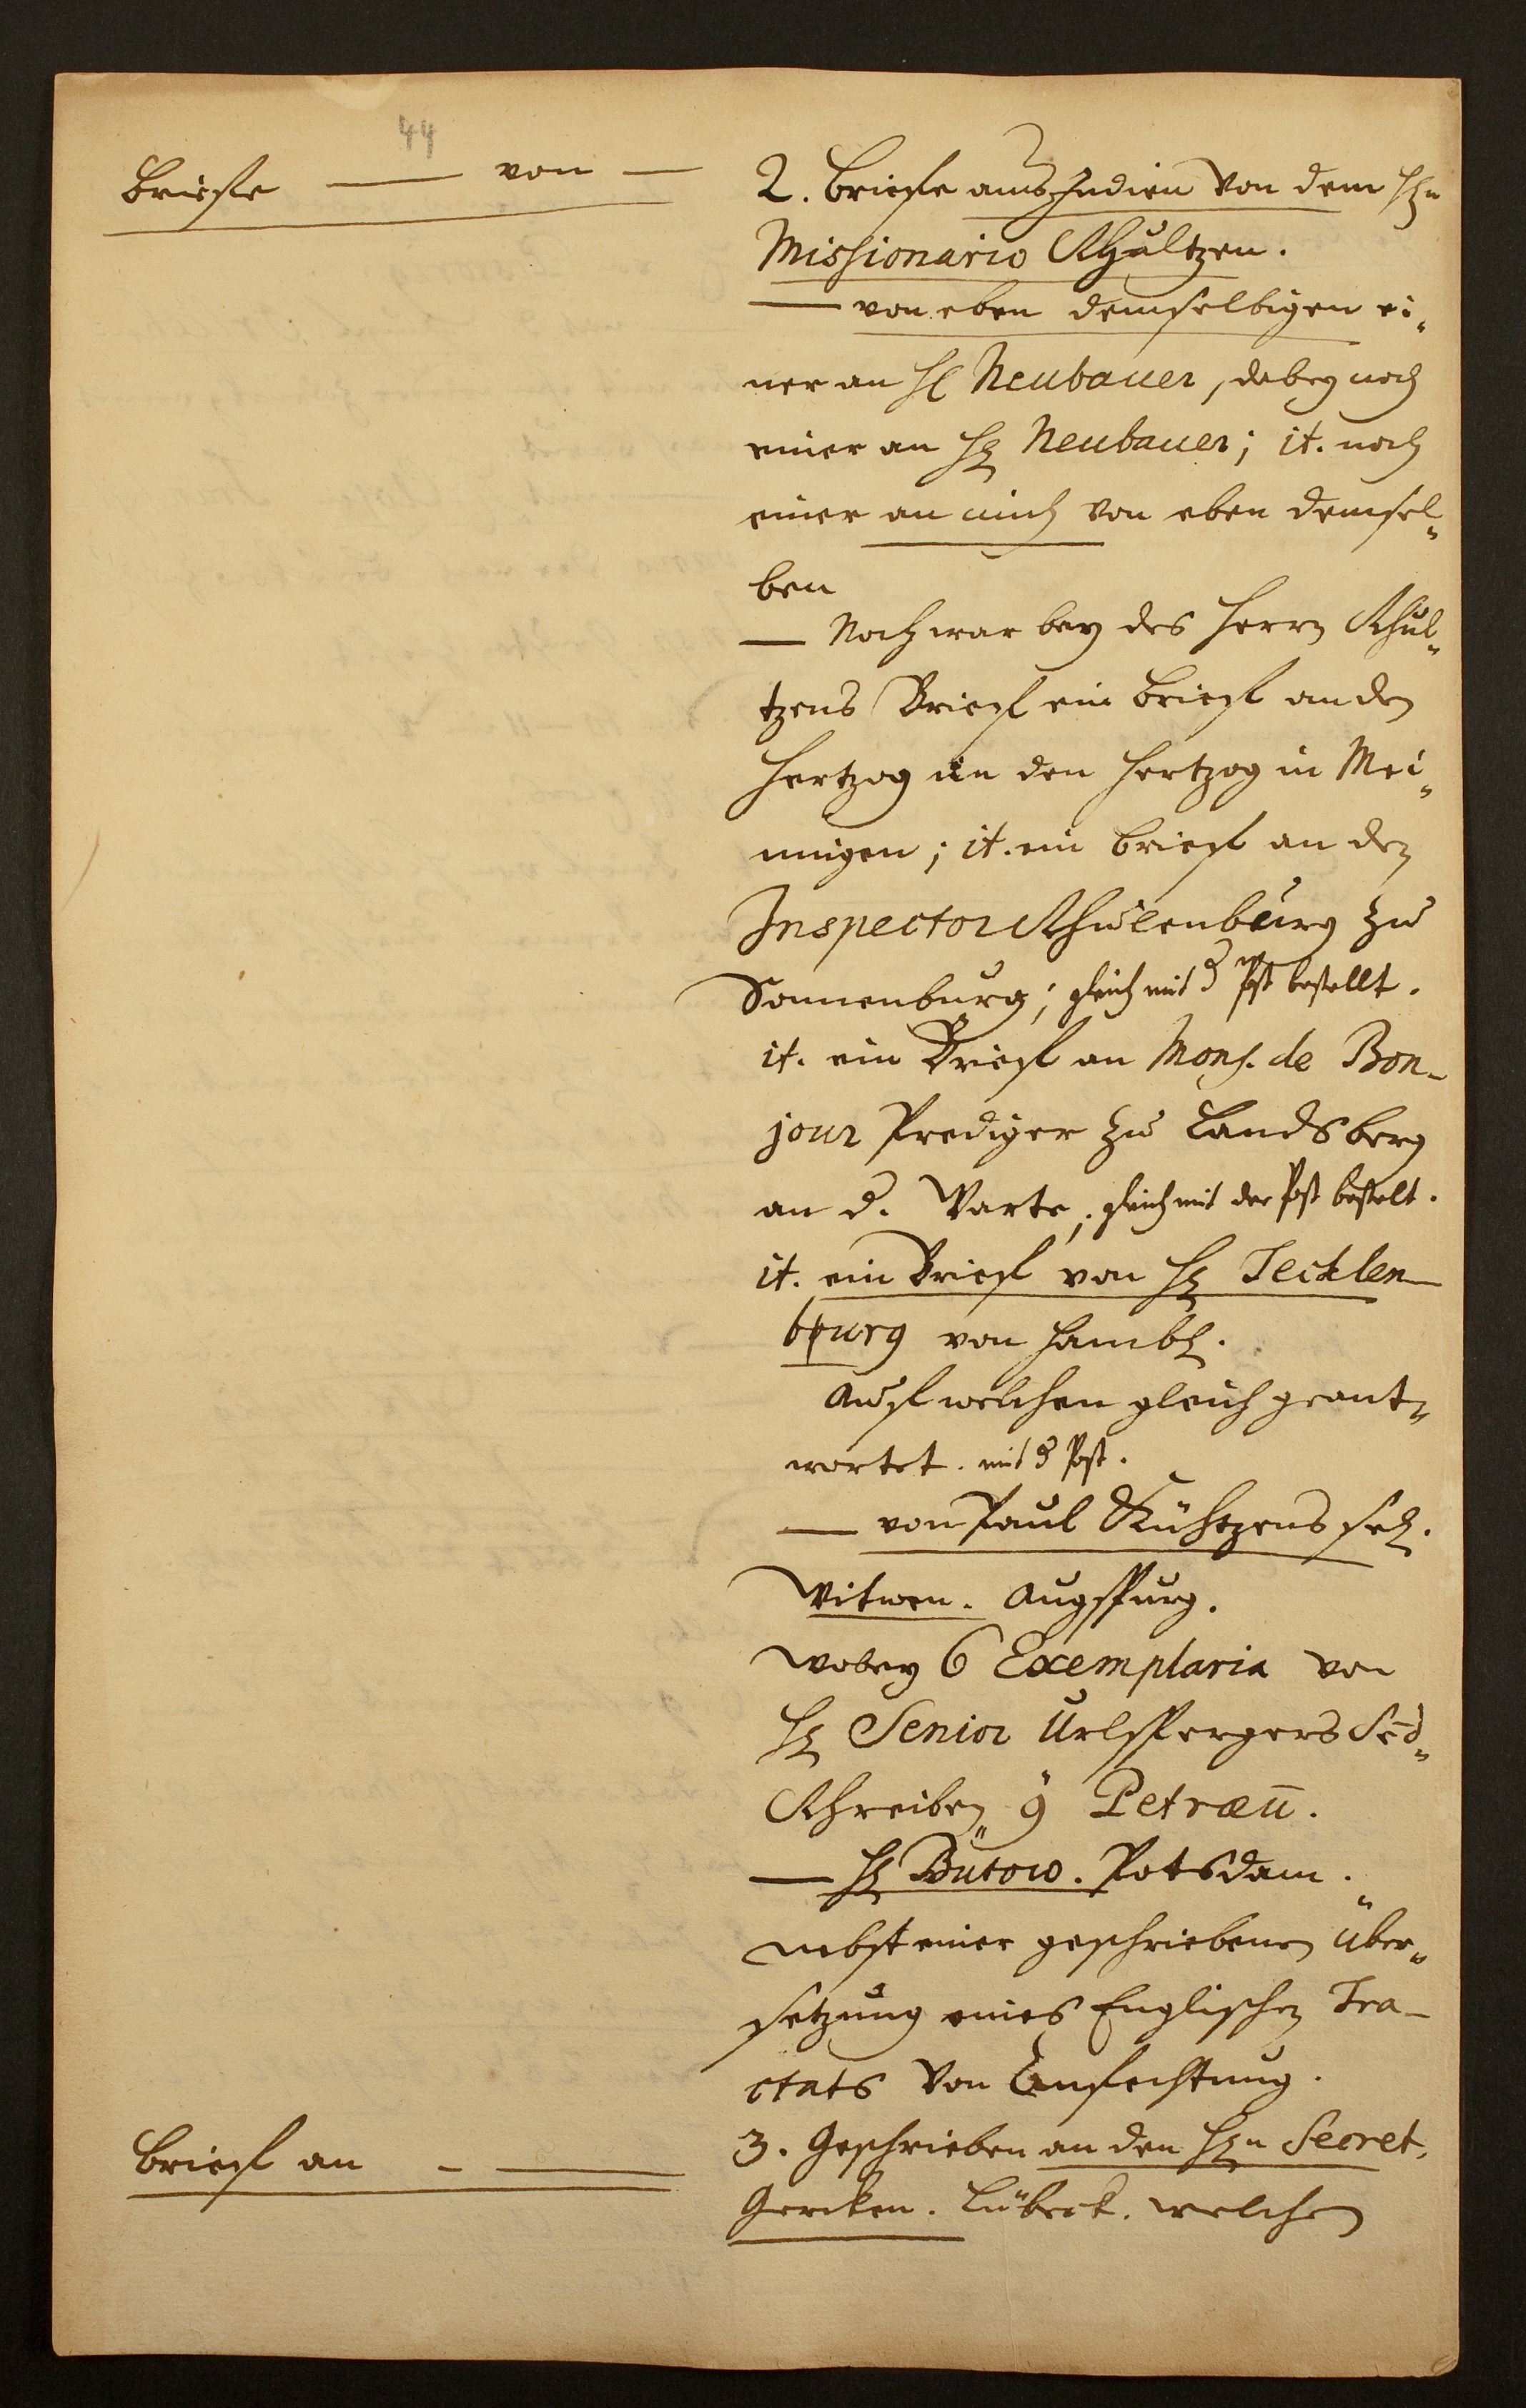 44
Briefe — von —
2. Briefe aus Indien von dem Hn
Missionario Schultzen.
— von eben demselbigen ei-
ner an H. Neubauer, dabey noch
einer an H. Neubauer; it. noch
einer an mich von eben demsel-
ben
— Noch war bey des Herrn Schul-
tzens Brief ein Brief an den
Hertzog in den Hertzog in Mei-
nungen; it. ein Brief an den
Inspector Schulenburg zu
Sonnenburg; gleich mit d Post bestellt.
it. ein Brief an Mons. de Bon-
jour Prediger zu Landsberg
an d. Warte; gleich mit der Post bestelt.
it. ein Brief von H. Tecklen-
burg von Hamb.
Auf welchen gleich geant-
wortet. mit d Post.
— von Paul Kühtzens sel.
Witwen. Augspurg.
wobey 6 Exemplaria von
H. Senior Urlspergers Sēd-
Schreiben g Petræū.
— H. Bütow. Potsdam.
nebst einer geschriebenen Über-
setzung eines Englischen Tra-
ctats von Anfechtung.
Brief an - —
3. Geschrieben an den Hn Secret.
Gercken. Lübeck. welchen